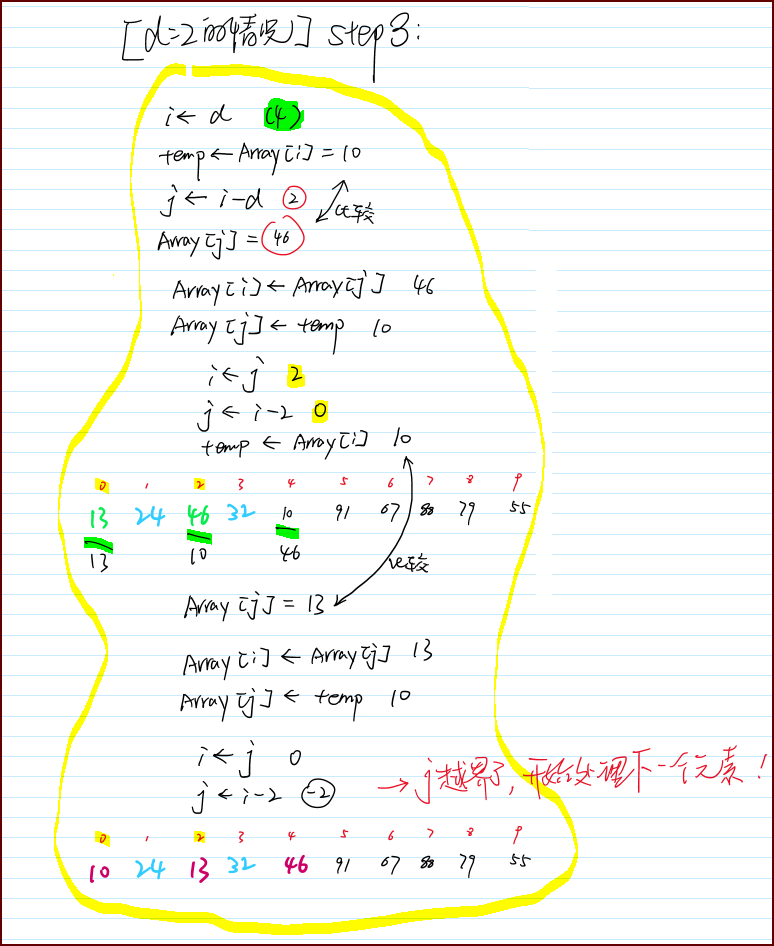 [d=2的情况] step 3:
i ← d (4)
temp ← Array[i] = 10
j ← i-d 2
比较
Array[j] = 46
Array[i] ← Array[j] 46
Array[j] ← temp 10
i ← j 2
j ← i-2 0
temp ← Array[i] 10
0 1 2 3 4 5 6 7 8 9
13 24 46 32 10 91 67 88 79 55
13 10 46
比较
Array[j] = 13
Array[i] ← Array[j] 13
Array[j] ← temp 10
i ← j 0
j ← i-2 -2 → j越界了,开始处理下一个元素!
0 1 2 3 4 5 6 7 8 9
10 24 13 32 46 91 67 88 79 55